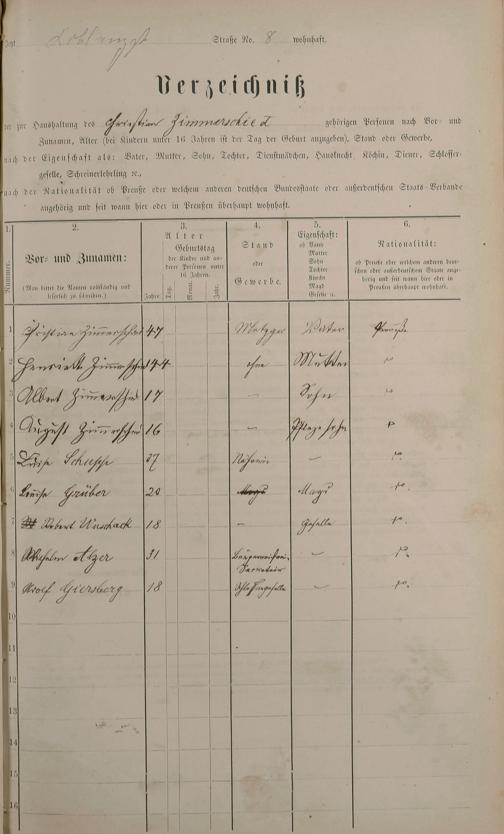 Straße No. 8 wohnhaft.
Verzeichniß
zur Haushaltung des Christian Zimmerschied gehörigen Personen nach Vor- und
Zunamen, Alter (bei Kindern unter 16 Jahren ist der Tag der Geburt anzugeben), Stand oder Gewerbe,
nach der Eigenschaft als: Vater, Mutter, Sohn, Tochter, Dienstmädchen, Hausknecht, Köchin, Diener, Schlosser-
geselle, Schreinerlehrling ꝛc.,
nach der Nationalität ob Preuße oder welchem anderen deutschen Bundesstaate oder außerdeutschen Staats-Verbande
angehörig und seit wann hier oder in Preußen überhaupt wohnhaft.
1. 2. 3. 4. 5. 6.
Nummer.
Vor- und Zunamen:
(Man bittet die Namen vollständig und
leserlich zu schreiben.)
Alter
Geburtstag
der Kinder und an-
derer Personen unter
16 Jahren.
Jahre. Tag. Monat. Jahr.
Stand
oder
Gewerbe.
Eigenschaft:
ob Vater
Mutter
Sohn
Tochter
Knecht
Magd
Geselle ꝛc.
Nationalität:
ob Preuße oder welchem anderen deut-
schen oder außerdeutschen Staate ange-
hörig und seit wann hier oder in
Preußen überhaupt wohnhaft.
1 Christian Zimmerschied 47 Metzger Vater Preuße
2 Henriette Zimmerschied 44 ohne Mutter "
3 Albert Zimmerschied 17 – Sohn "
4 August Zimmerschied 16 – Pflegesohn "
5 Luise Schuppe 27 Näherin –
6 Louise Grüber 20 Magd
7 Robert Unschack 18 – Geselle
8 Wilhelm Alzer 31 –
9 Adolf Giersberg 18
10
11
12
13
14
15
16